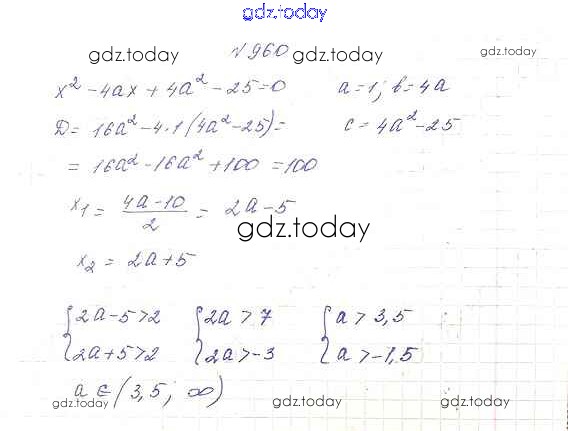 gdz.today
gdz.today №960 gdz.today gdz.today
x² - 4ax + 4a² - 25 = 0 a = 1; b = 4a
D = 16a² - 4·1(4a² - 25) = c = 4a² - 25
= 16a² - 16a² + 100 = 100
x₁ = (4a - 10)/2 = 2a - 5
gdz.today
x₂ = 2a + 5
{2a - 5 > 2 {2a > 7 {a > 3,5
{2a + 5 > 2 {2a > -3 {a > -1,5
a ∈ (3,5; ∞)
gdz.today gdz.today gdz.today